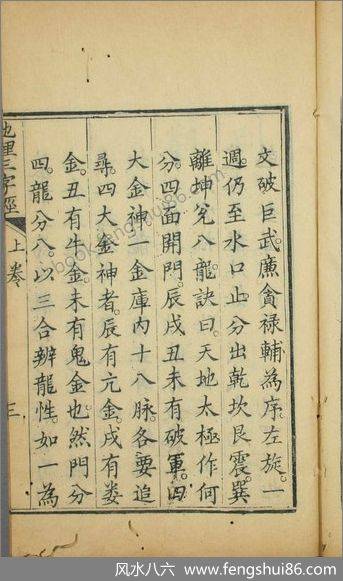 文破巨武廉貪禄輔為序左旋。一
週。仍至水口止分出乾坎艮震巽
離坤兌八龍訣曰。天地太極作何
分。四面開門。辰戌丑未有破軍。四
大金神一金庫內十八脉各要追
尋。四大金神者。辰有亢金。戌有婁
金。丑有牛金。未有鬼金也。然門分
四。龍分八。以三合辨龍性。如一為
地理三字經 上卷 三
风水八六 | www.fengshui86.com